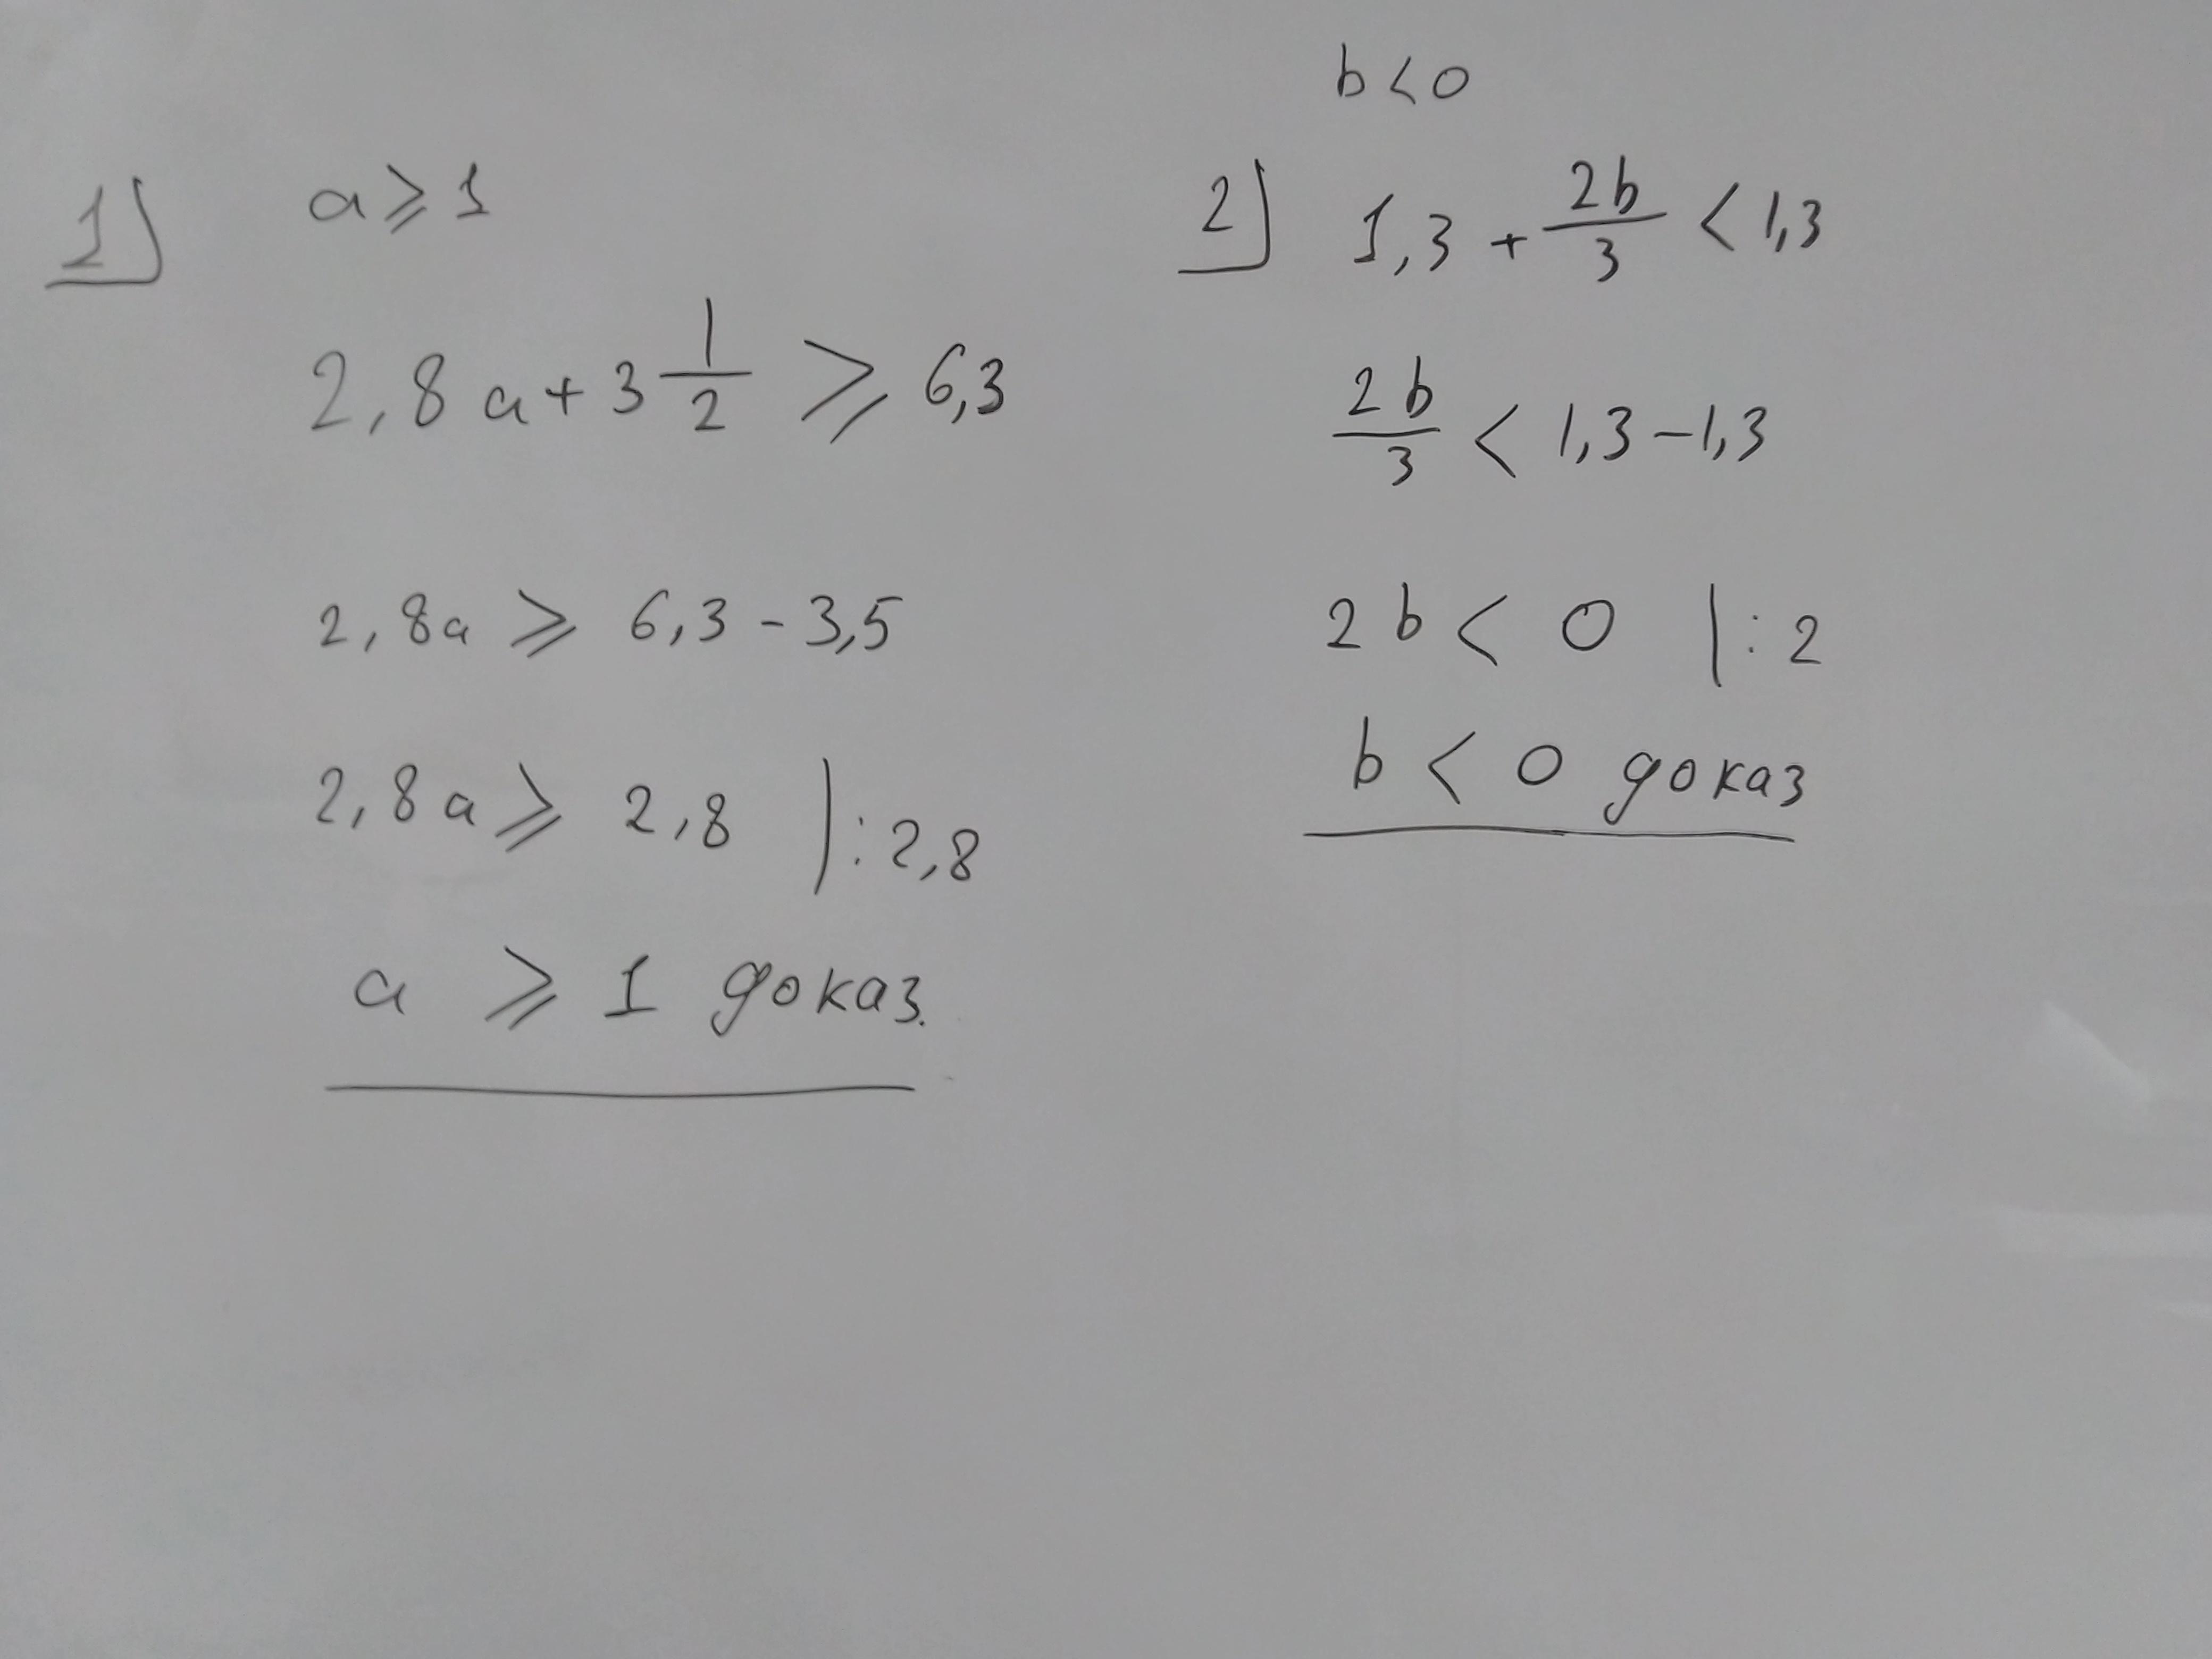 1)
a ⩾ 1
2,8a + 3 1/2 ⩾ 6,3
2,8a ⩾ 6,3 - 3,5
2,8a ⩾ 2,8 | : 2,8
a ⩾ 1 доказ.
b < 0
2) 1,3 + 2b/3 < 1,3
2b/3 < 1,3 - 1,3
2b < 0 | : 2
b < 0 доказ